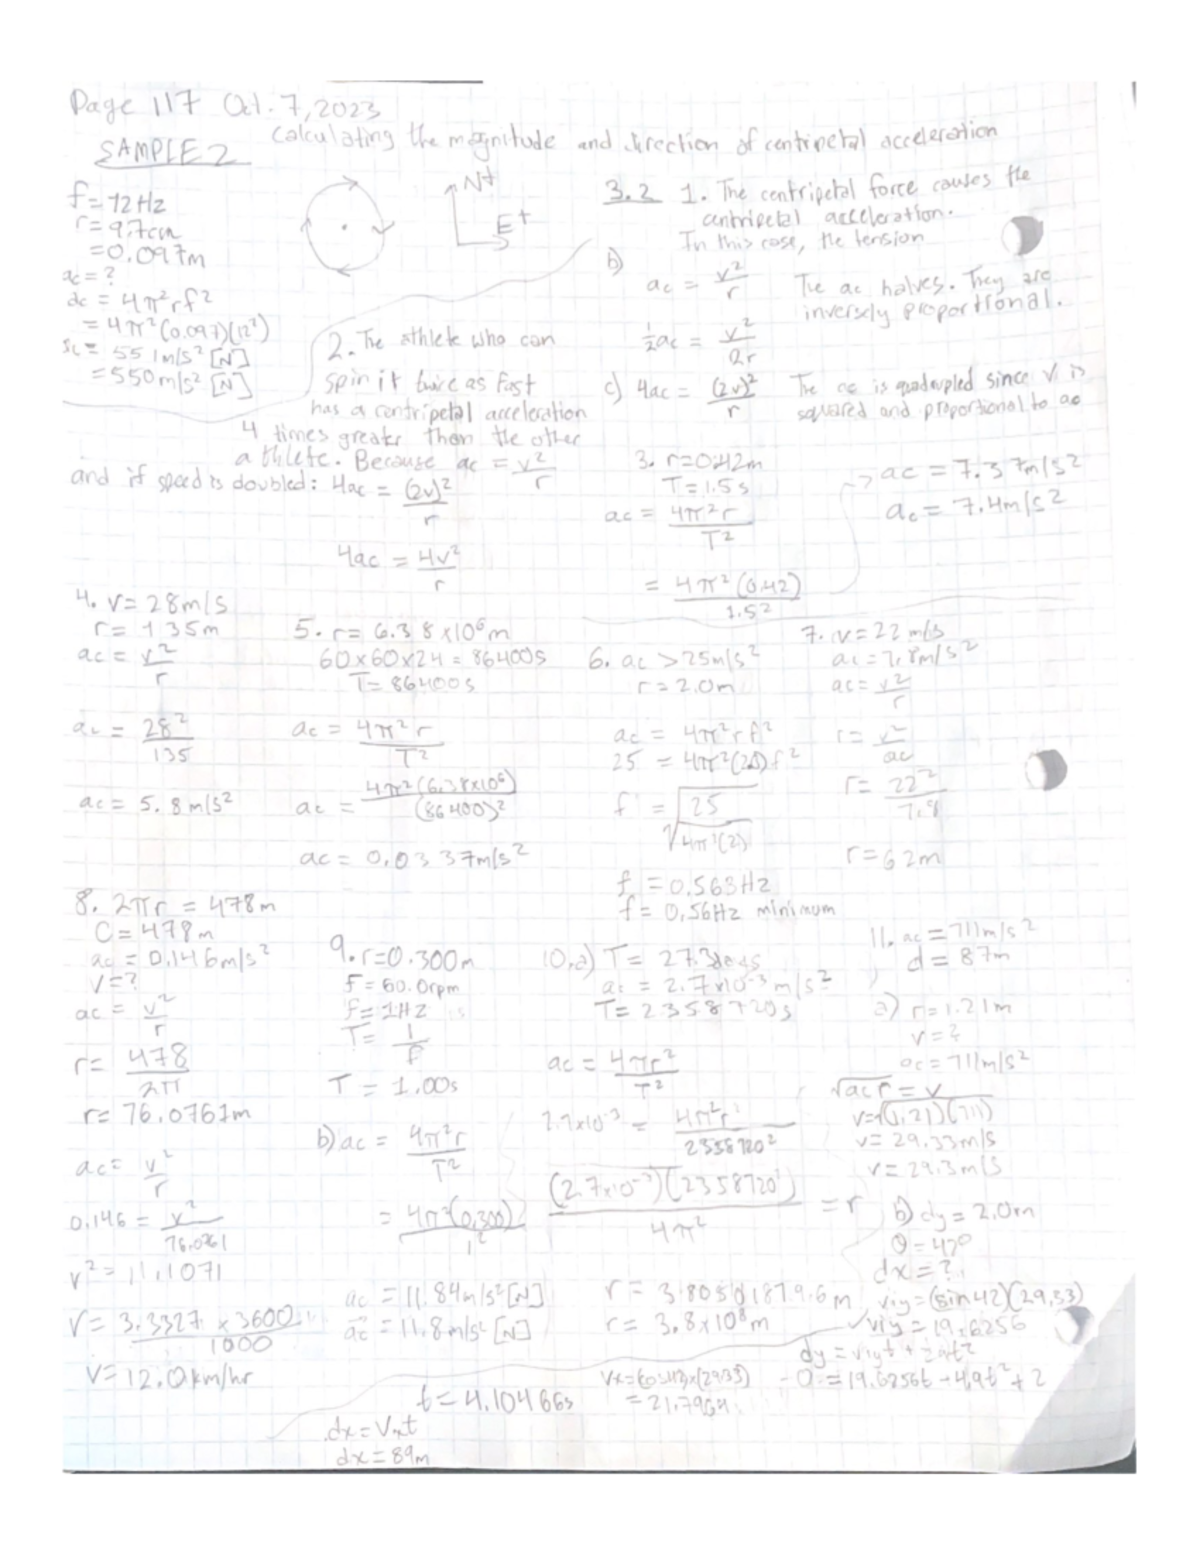 Page 117 Oct. 7, 2023
Calculating the magnitude and direction of centripetal acceleration
SAMPLE 2
f = 12Hz
r = 9.7cm
= 0.097m
ac = ?
ac = 4π²rf²
= 4π²(0.097)(12²)
ac = 551m/s² [N]
= 550m/s² [N]
N+
E+
3.2 1. The centripetal force causes the
centripetal acceleration.
In this case, the tension
b)
ac = v²/r
The ac halves. They are
inversely proportional.
½ac = v²/2r
c) 4ac = (2v)²/r
The ac is quadrupled since v is
squared and proportional to ac
2. The athlete who can
spin it twice as fast
has a centripetal acceleration
4 times greater than the other
athlete. Because ac = v²/r
and if speed is doubled: 4ac = (2v)²/r
4ac = 4v²/r
3. r = 0.42m
T = 1.5s
ac = 4π²r/T²
= 4π²(0.42)/1.5²
ac = 7.37m/s²
ac = 7.4m/s²
4. v = 28m/s
r = 135m
ac = v²/r
ac = 28²/135
ac = 5.8m/s²
5. r = 6.38x10⁶m
60x60x24 = 86400s
T = 86400s
ac = 4π²r/T²
ac = 4π²(6.38x10⁶)/(86400)²
ac = 0.0337m/s²
6. ac > 25m/s²
r = 2.0m
ac = 4π²rf²
25 = 4π²(2.0)f²
f = √25/4π²(2)
f = 0.563Hz
f = 0.56Hz minimum
7. v = 22m/s
ac = 7.8m/s²
ac = v²/r
r = v²/ac
r = 22²/7.8
r = 62m
8. 2πr = 478m
C = 478m
ac = 0.146m/s²
v = ?
ac = v²/r
r = 478/2π
r = 76.0761m
ac = v²/r
0.146 = v²/76.0761
v² = 11.1071
v = 3.3327 x 3600/1000
v = 12.0km/hr
9. r = 0.300m
f = 60.0rpm
f = 1Hz
T = 1/f
T = 1.00s
b) ac = 4π²r/T²
= 4π²(0.300)/1²
ac = 11.84m/s² [N]
ac = 11.8m/s² [N]
10. a) T = 27.3days
ac = 2.7x10⁻³m/s²
T = 2358720s
ac = 4πr²/T²
2.7x10⁻³ = 4π²r/2358720²
(2.7x10⁻³)(2358720²)/4π² = r
r = 3.8x10⁸m
11. ac = 711m/s²
d = 87m
a) r = 1.21m
v = ?
ac = 711m/s²
√ac r = v
v = √(1.21)(711)
v = 29.33m/s
v = 29.3m/s
b) dy = 2.0m
θ = 42°
dx = ?
viy = (sin42)(29.33)
viy = 19.6256
dy = viyt + ½at²
0 = 19.6256t - 4.9t² + 2
vx = (cos42)x(29.33)
= 21.7964
t = 4.10466s
dx = Vxt
dx = 89m